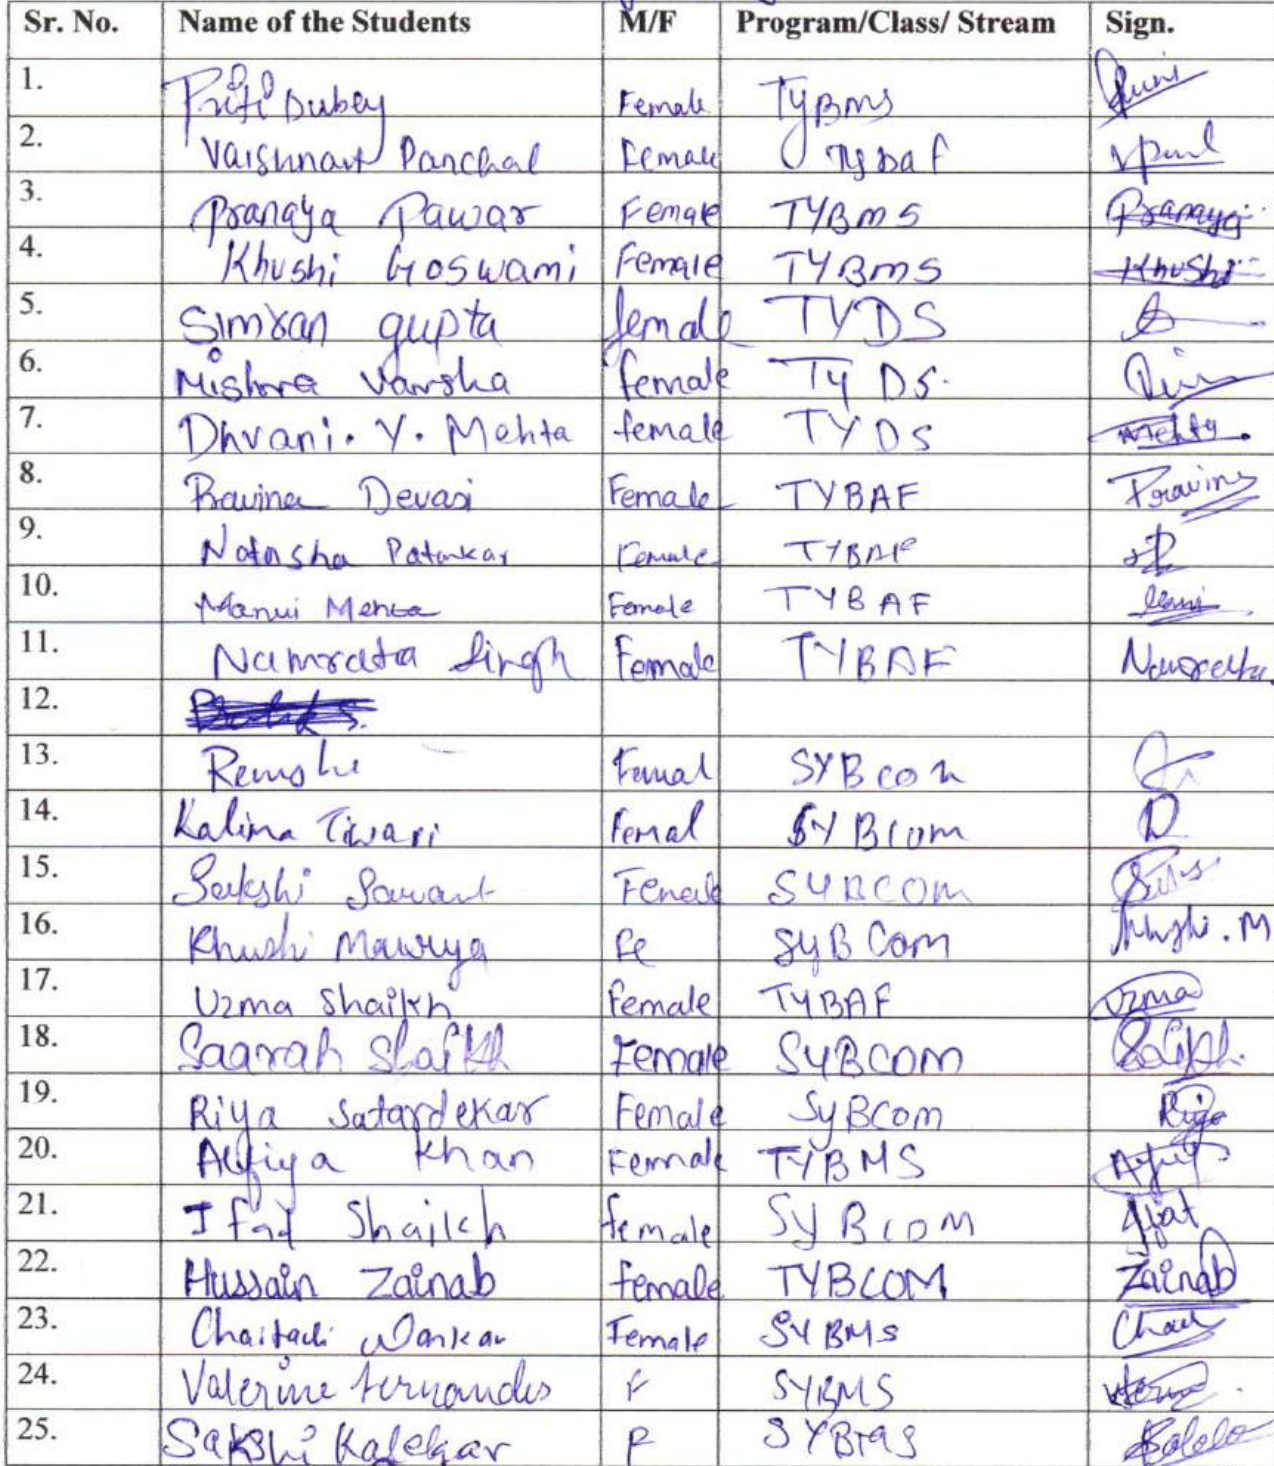 Sr. No. Name of the Students M/F Program/Class/ Stream Sign.
1. Priti Dubey Female TYBMS
2. Vaishnavi Panchal Female Tybaf
3. Pranaya Pawar Female TYBMS Pranaya
4. Khushi Goswami Female TYBMS Khushi
5. Simran gupta female TYDS
6. Mishra Varsha female TYDS.
7. Dhvani. Y. Mehta female TYDS Mehta.
8. Pravina Devasi Female TYBAF Pravina
9. Natasha Patankar Female TYBAF
10. Manvi Mehta Female TYBAF
11. Namrata Singh Female TYBAF Namrata
12.
13. Femal SYBcom
14. Kalima Tiwari Femal SYBcom
15. Sakshi Sawant Female SYBCOM
16. Khushi Maurya Fe SyB Com Khushi.M
17. Uzma Shaikh Female TYBAF Uzma
18. Saarah Shaikh Female SYBCOM Shaikh.
19. Riya Satardekar Female SyBCom Riya
20. Alfiya Khan Female TYBMS
21. Ifat Shaikh female SyBCOM Ifat
22. Hussain Zainab female TYBCOM Zainab
23. Chaitali Wankar Female SYBMS
24. Valerine fernandes F SYBMS
25. Sakshi Kalekar F